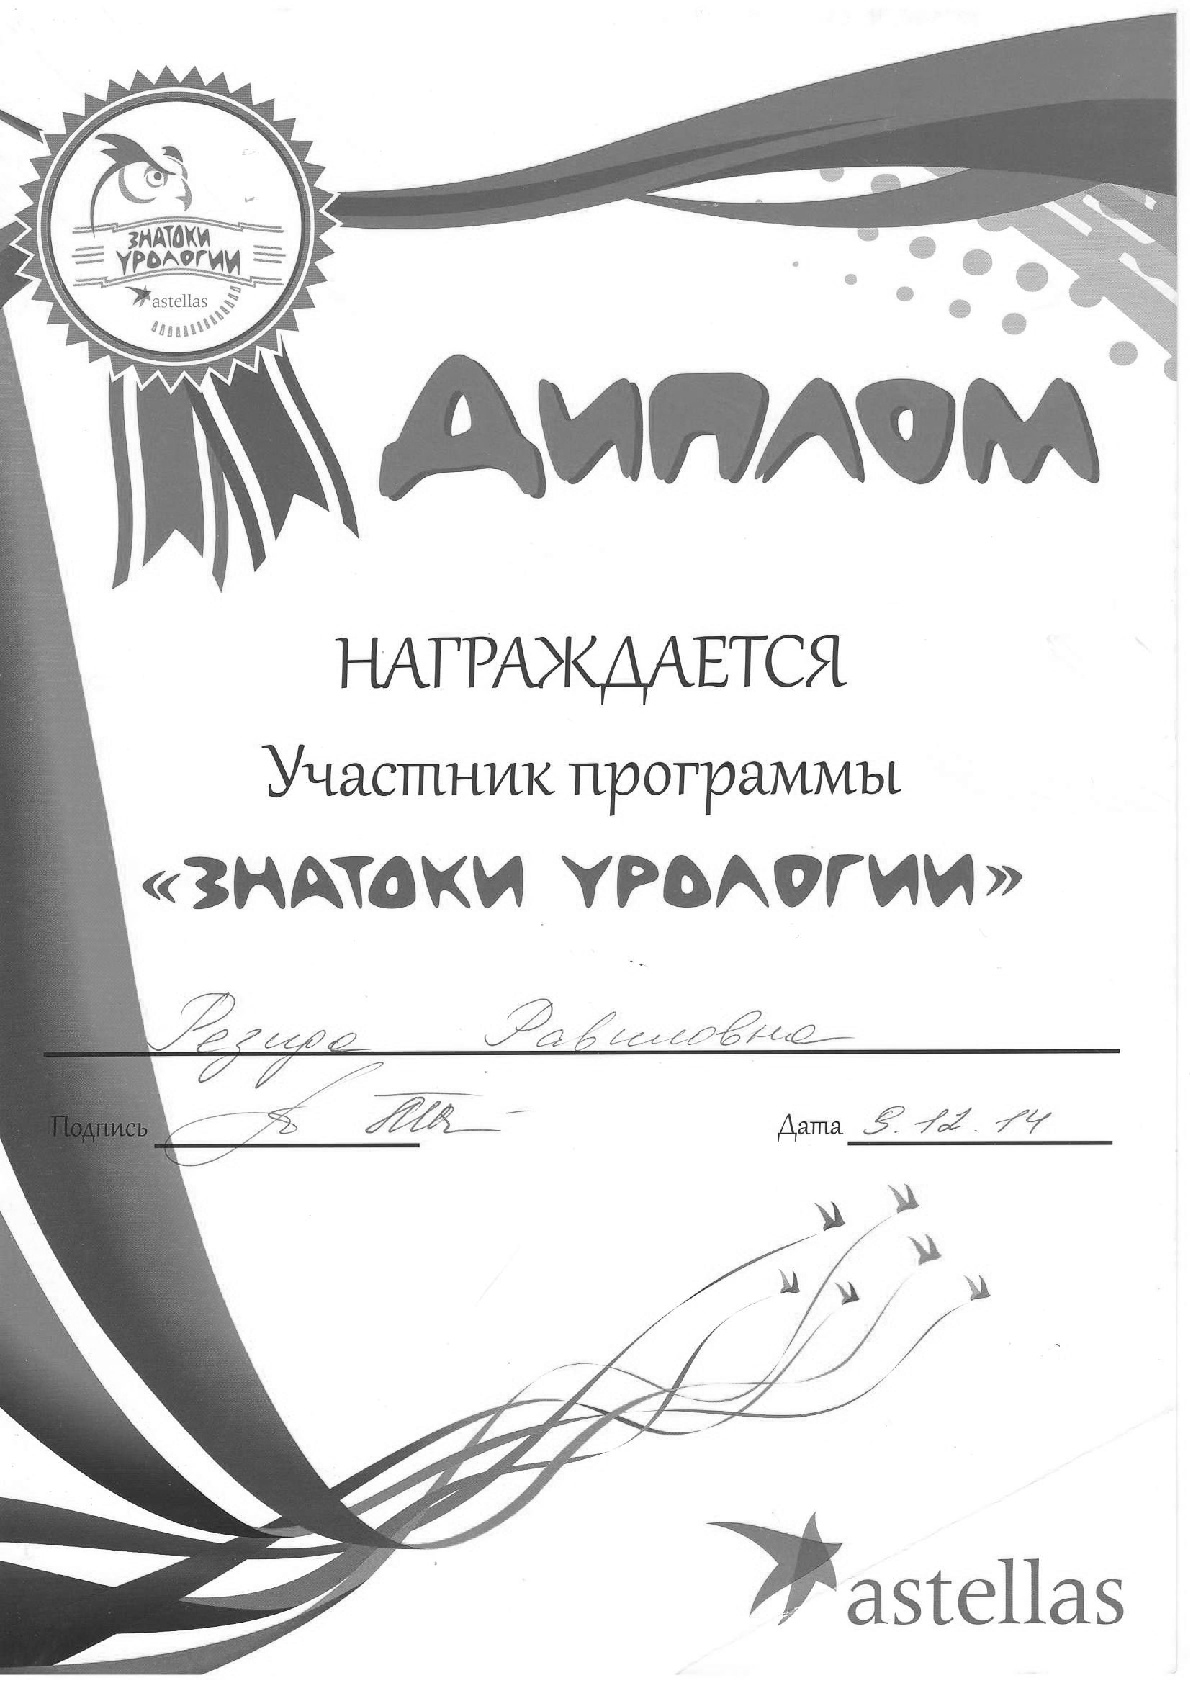 ЗНАТОКИ
УРОЛОГИИ
astellas
ДИПЛОМ
НАГРАЖДАЕТСЯ
Участник программы
«ЗНАТОКИ УРОЛОГИИ»
Резида Равиловна
Подпись
Дата 9.12.14
astellas